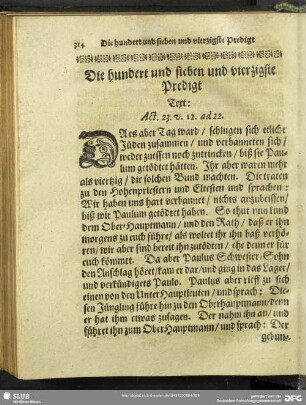 314 Die hundert und sieben und vierzigste Predigt
Die hundert und sieben und vierzigste
Predigt
Text:
Act. 23. v. 12. ad 22.
DA es aber Tag ward / schlugen sich etliche
Jüden zusammen / und verbanneten sich /
weder zuessen noch zutrincken / biß sie Pau-
lum getödtet hätten. Ihr aber waren mehr
als viertzig / die solchen Bund machten. Die traten
zu den Hohenpriestern und Eltesten und sprachen:
Wir haben uns hart verbannet / nichts anzubeissen /
biß wir Paulum getödtet haben. So thut nun kund
dem Ober Hauptmann / und den Rath / daß er ihn
morgens zu euch führe / als woltet ihr ihn baß verhö-
ren / wir aber sind bereit ihn zutödten / ehe denn er für
euch kömmet. Da aber Paulus Schwester-Sohn
den Anschlag höret / kam er dar / und ging in das Lager /
und verkündigets Paulo. Paulus aber rieff zu sich
einen von den Unter Häuptleuten / und sprach: Die-
sen Jüngling führe hin zu den Oberhauptmann / denn
er hat ihm etwas zusagen. Der nahm ihn an / und
führet ihn zum Ober Hauptmann / und sprach: Der
gebun-
SLUB
DFG